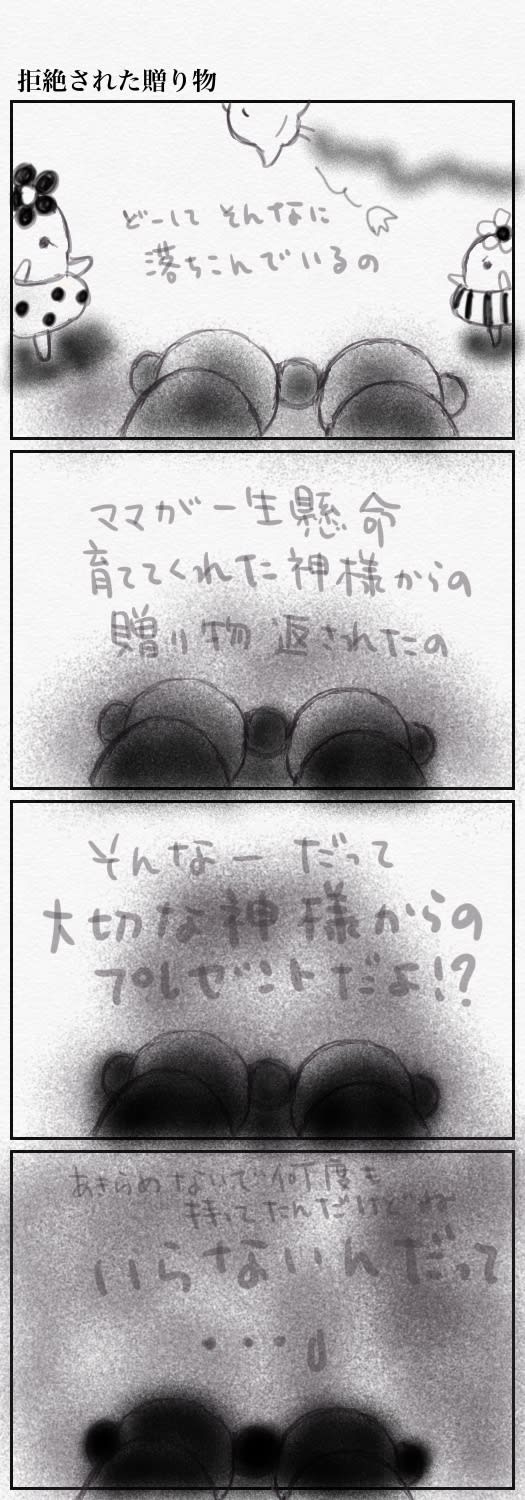 拒絶された贈り物
どーして そんなに
落ちこんでいるの
ママが一生懸命
育ててくれた神様からの
贈り物 返されたの
そんなー だって
大切な神様からの
プレゼントだよ!?
あきらめないで何度も
持ってたんだけどね
いらないんだって
・・・